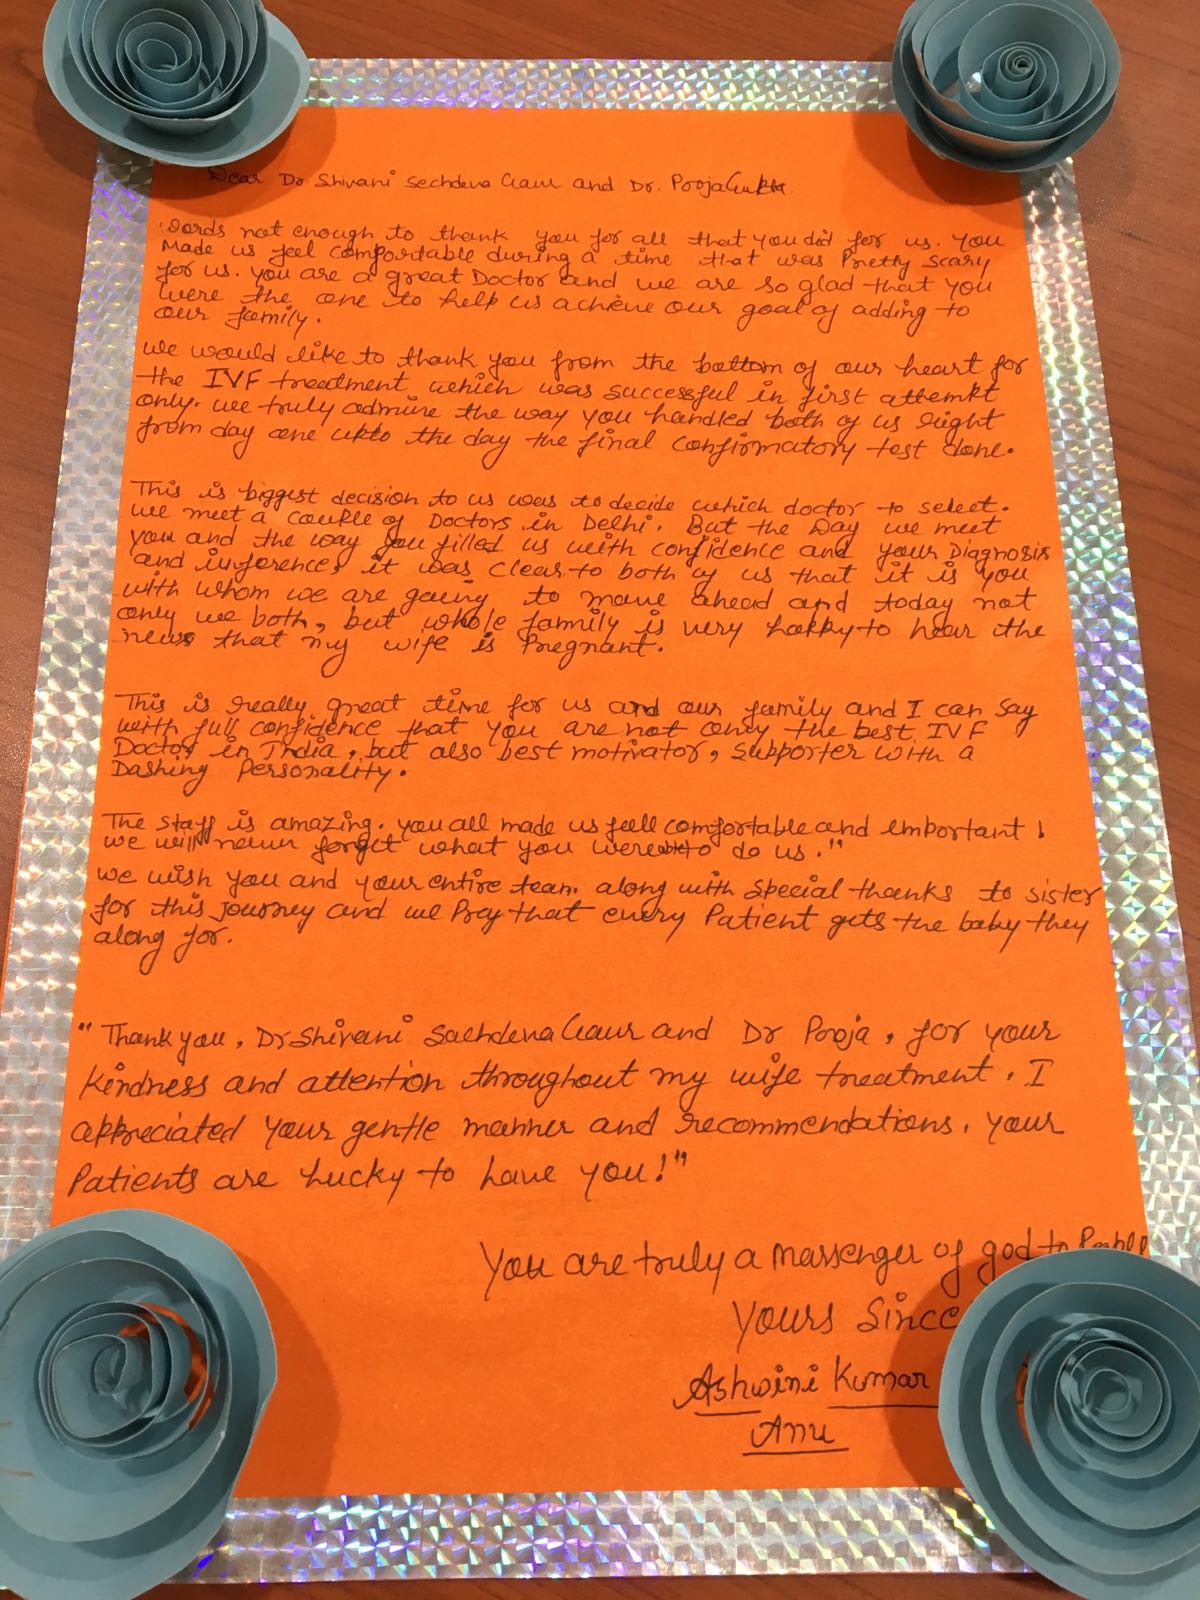 Dear Dr Shivani Sechdeva Gaur and Dr. Pooja Gupta.
words not enough to thank you for all that you did for us. you
Made us feel comfortable during a time that was Pretty scary
for us. you are a great Doctor and we are so glad that you
were the one to help us achieve our goal of adding to
our family.
we would like to thank you from the bottom of our heart for
the IVF treatment which was successful in first attempt
only. we truly admire the way you handled both of us right
from day one upto the day the final confirmatory test done.
This is biggest decision to us was to decide which doctor to select.
we meet a couple of Doctors in Delhi. But the Day we meet
you and the way you filled us with confidence and your Diagnosis
and inferences it was clear to both of us that it is you
with whom we are going to move ahead and today not
only we both, but whole family is very happy to hear the
news that my wife is Pregnant.
This is really great time for us and our family and I can say
with full confidence that you are not only the best IVF
Doctor in India, but also best motivator, supporter with a
Dashing Personality.
The staff is amazing. you all made us feel comfortable and important!
we will never forget what you were to do us."
we wish you and your entire team along with special thanks to sister
for this Journey and we Pray that every Patient gets the baby they
along for.
"Thank you, Dr Shivani Sachdeva Gaur and Dr Pooja, for your
kindness and attention throughout my wife treatment. I
appreciated your gentle manner and recommendations. your
Patients are lucky to have you!"
You are truly a massenger of god to
Yours Since
Ashwini Kumar
Anu